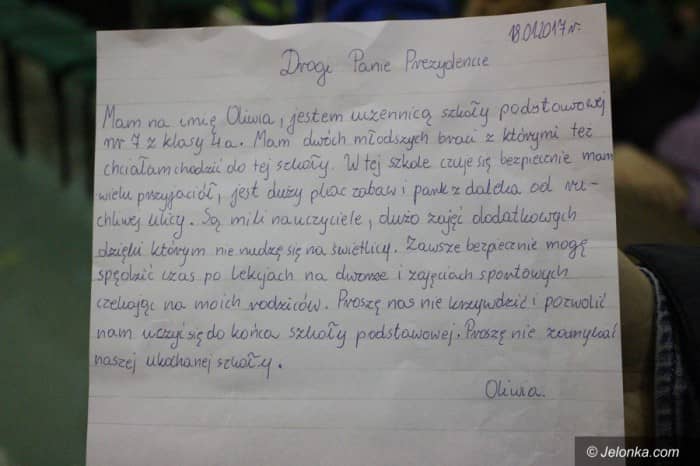 18.01.2017r.
Drogi Panie Prezydencie
Mam na imię Oliwia, jestem uczennicą szkoły podstawowej
nr 7 z klasy 4a. Mam dwóch młodszych braci z którymi też
chciałam chodzić do tej szkoły. W tej szkole czuję się bezpiecznie mam
wielu przyjaciół, jest duży plac zabaw i park z daleka od ru-
chliwej ulicy. Są mili nauczyciele, dużo zajęć dodatkowych
dzięki którym nie nudzę się na świetlicy. Zawsze bezpiecznie mogę
spędzić czas po lekcjach na dworze i zajęciach sportowych
czekając na moich rodziców. Proszę nas nie krzywdzić i pozwolić
nam uczyć się do końca szkoły podstawowej. Proszę nie zamykać
naszej ukochanej szkoły.
Oliwia.
© Jelonka.com